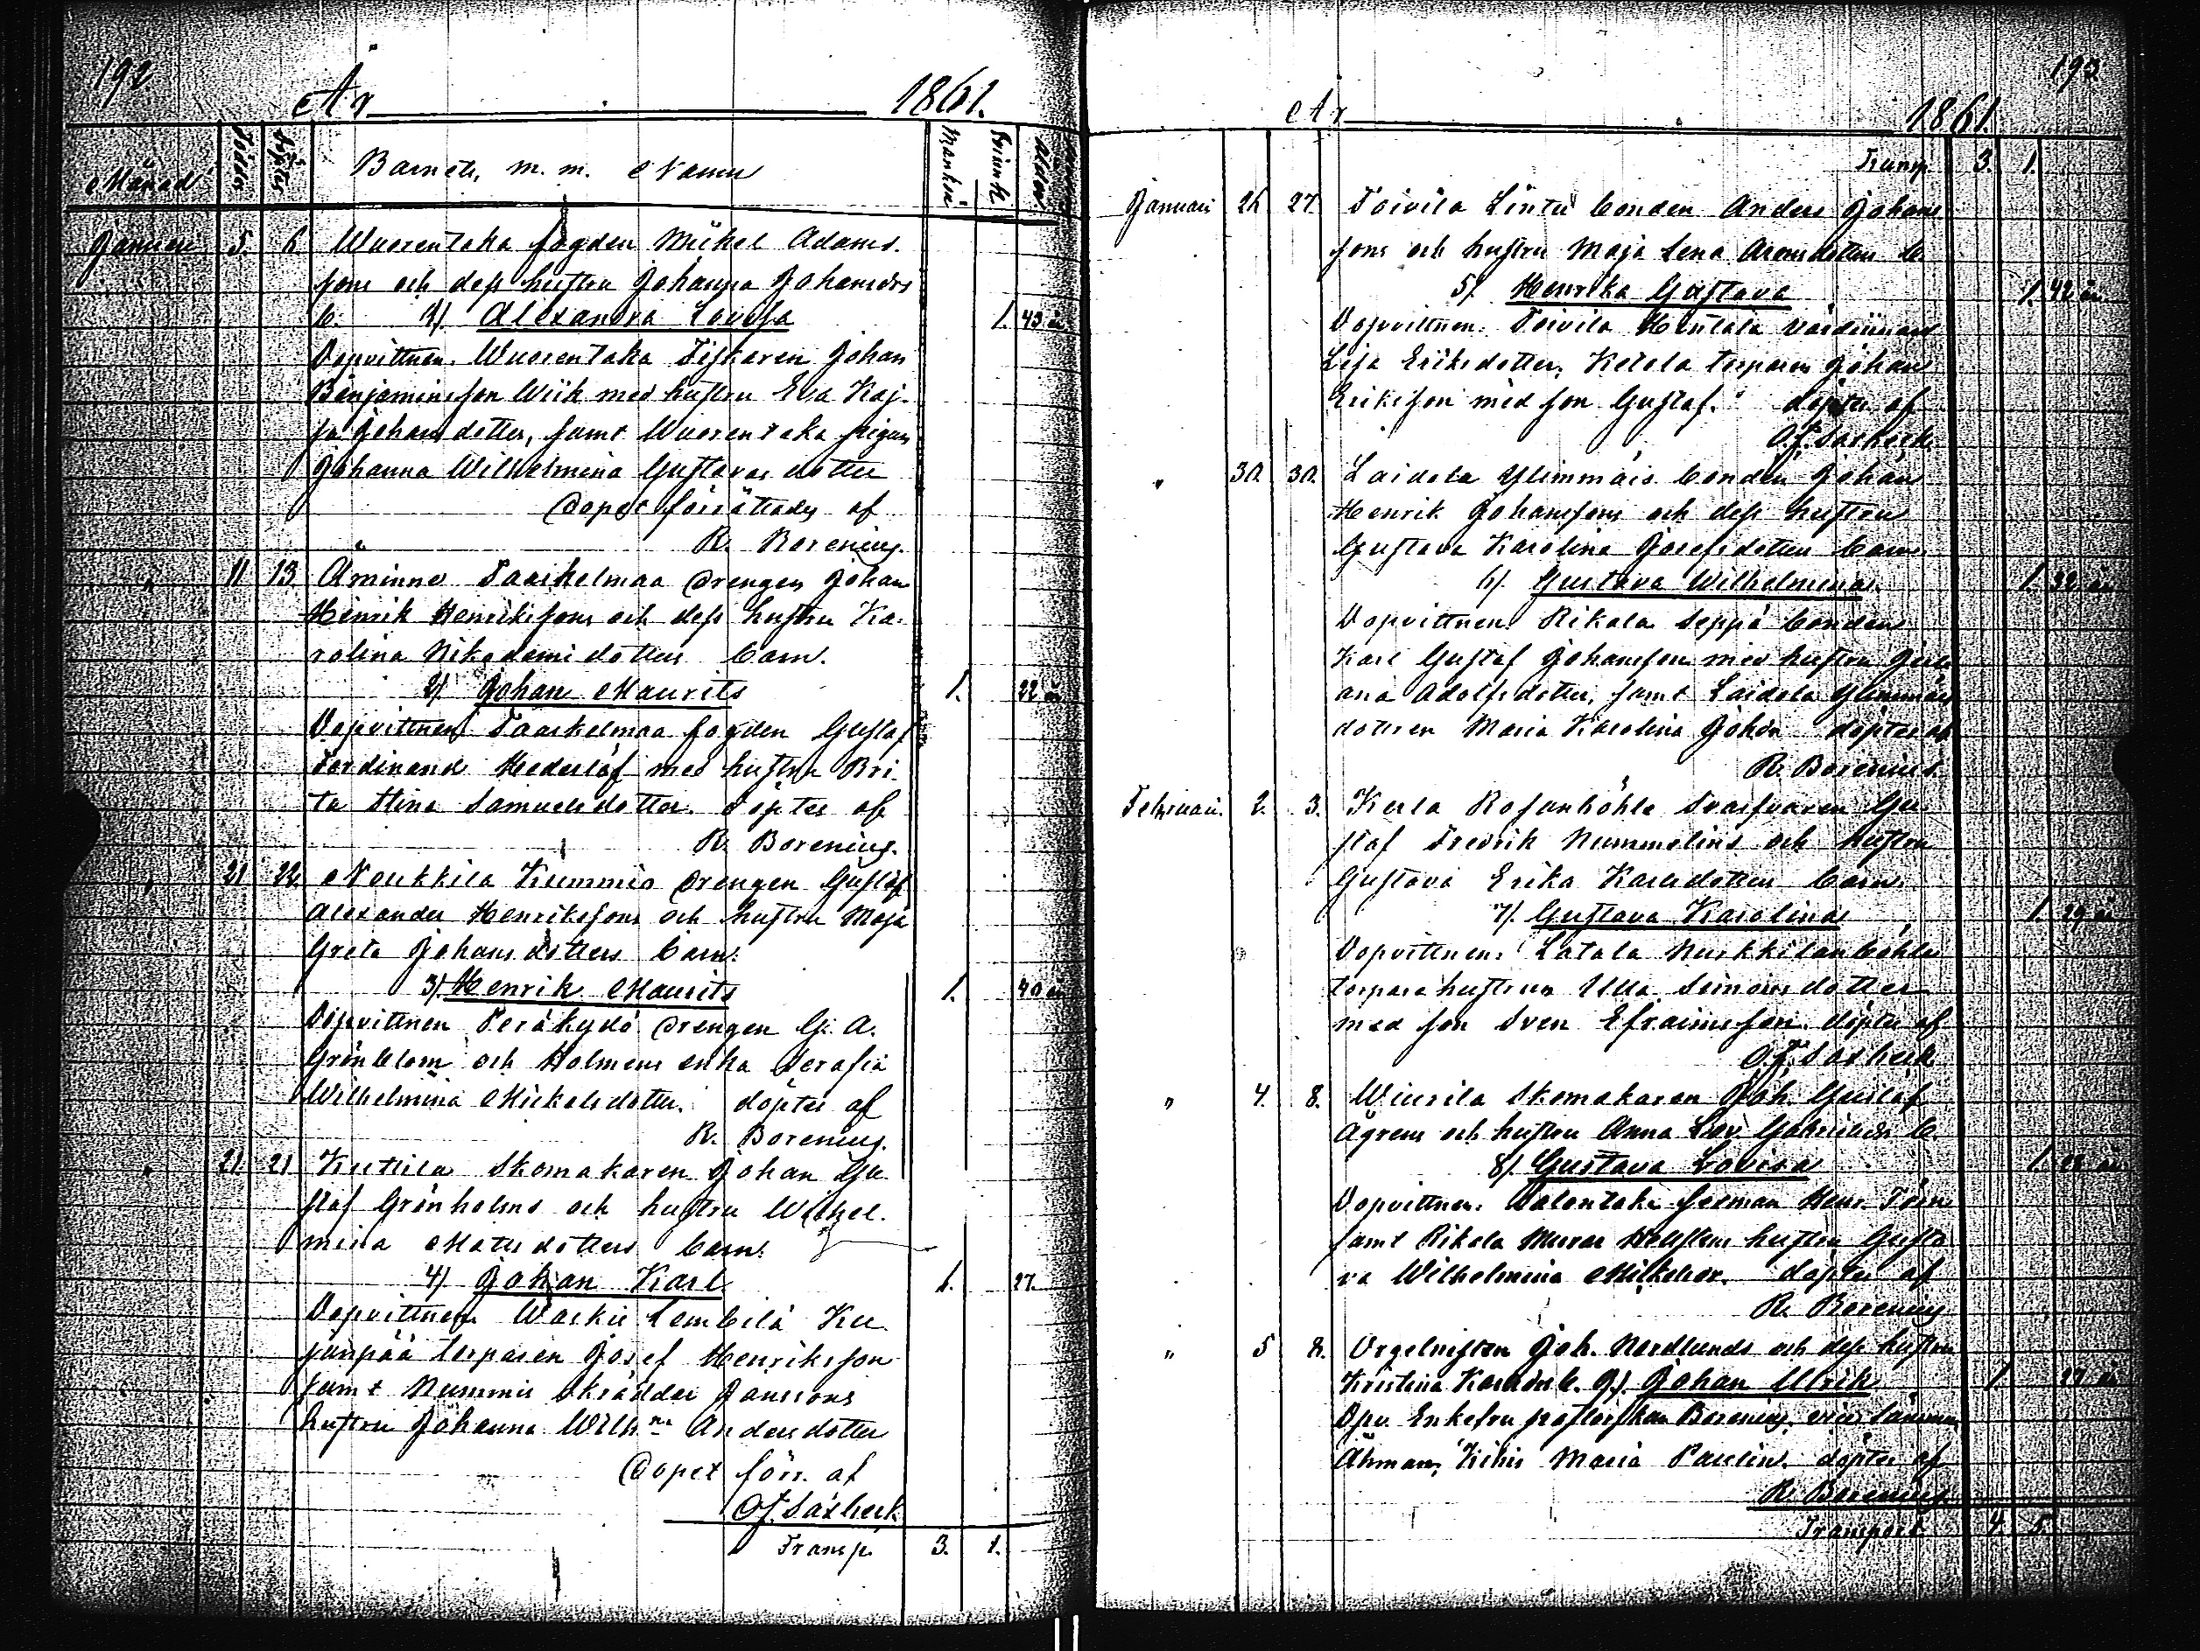 192
År 1861.
Månad Födder Döpter Barnets, m. m. Namn Mankön Qvinnk ålder
Januari 5. 6 Wuorentaka fogden Mikel Adams-
sons och dess hustru Johanna Johansdrs
b. 1) Alexandra Lovisa 1. 43 år
Dopvittnen. Wuorentaka Fiskaren Johan
Benjaminsson Wiik med hustru Eva Kaj-
sa Johansdotter, samt Wuorentaka pigan
Johanna Wilhelmina Gustavas dotter
Dopet förrättades af
R. Borenius.
" 11 13 Åminne Taaskelmaa drengen Johan
Henrik Henrikssons och dess hustru Ka-
rolina Nikodemi dotters barn.
2) Johan Maurits 1. 22 år
Dopvittnen Taaskelmaa fogden Gustaf
Ferdinand Hederlöf med hustru Bri-
ta Stina Samuelsdotter. Döpter af
R. Borenius.
" 21 22 Noukkila Kummio drengen Gustaf
Alexander Henrikssons och hustru Maja
Greta Johansdotters barn.
3) Henrik Maurits 1. 40 år
Dopvittnen Peräkylä drengen G. A.
Grönblom och Holmens enka Serafia
Wilhelmina Mickelsdotter. döpter af
R. Borenius.
" 21. 21 Kuttila Skomakaren Johan Gu-
staf Grönholms och hustru Wilhel-
mina Matsdotters barn.
4) Johan Karl 1. 27.
Dopvittnen Waskio Lembilä Ku-
junpää torparen Josef Henriksson
samt Nummis skräddar Janssons
hustru Johanna Wilhna Andersdotter
Dopet förr. af
O. J. Saxbeck
Transp. 3. 1.
193
År 1861.
Transp. 3. 1.
Januari 26 27. Toivila Lintu bonden Anders Johans
sons och hustru Maja Lena dotters b.
5). Henrika Gustava 1. 42 år
Dopvittnen. Toivila Hintala
Lisa Eriksdotter, Ketola torparen Johan
Eriksson med son Gustaf. döpter af
O. J. Saxbeck
" 30. 30. Laidola Ylimmäis bonden Johan
Henrik Johanssons och dess hustru
Gustava Karolina Josefsdotters barn
6). Gustava Wilhelmina. 1. 32 år
Dopvittnen. Rikala Seppä bonden
Karl Gustaf Johansson med hustru Juli-
ana Adolfsdotter, samt Laidola Ylimmäis
dottren Maria Karolina Johdr döpter af
R. Borenius.
Februari. 2. 3. Kerla Rosanböhle Svarfvaren Gu-
staf Fredrik Nummelins och hustru
Gustava Erika Karlsdotters barn.
7). Gustava Karolina 1. 29 år
Dopvittnen. Latola Nurkkilanböhle
torpare hustrun Ulla Simonsdotter
med son Sven Efraimsson. döpter af
O. J. Saxbeck
" 4. 8. Wiurila Skomakaren Joh. Gustaf
Ågrens och hustru Anna Lov. Gabrielsdr b.
8). Gustava Lovisa 1. 28 år
Dopvittnen. Salontaka Henr. Törn
samt Rikala hustru Gusta
va Wilhelmina Mikelsdr. döpter af
R. Borenius
" 5 8. Orgelnisten Joh. Nordlunds och dess hustru
Kristina Karlsdrs b. 9). Johan Ulrik 1 27 år
Dpv Enkefru Borenius,
Åhman, Maria Paulin. döpter af
R. Borenius
Transport 4. 5.